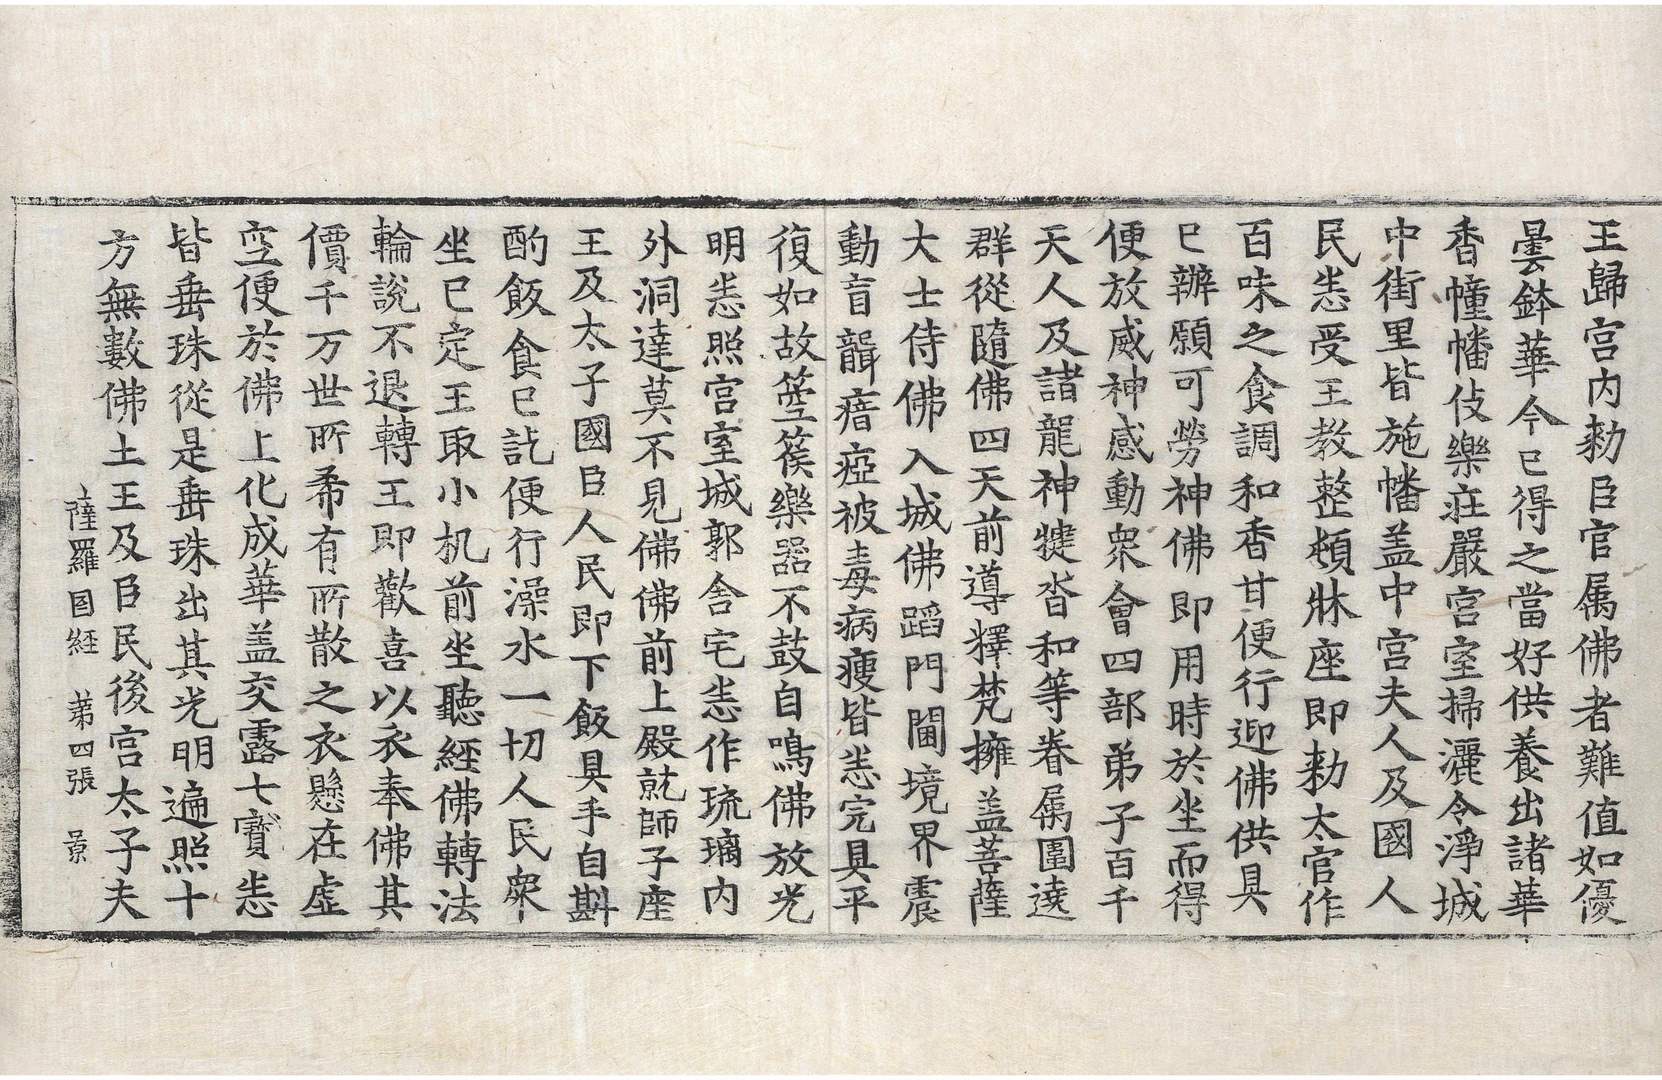 王歸宮內勑臣官属佛者難值如優
曇鉢華今已得之當好供養出諸華
香幢幡伎樂莊嚴宮室掃灑令淨城
中街里皆施幡盖中宮夫人及國人
民悉受王教整頓牀座即勑太官作
百味之食調和香甘便行迎佛供具
已辦願可勞神佛即用時於坐而得
便放威神感動衆會四部弟子百千
天人及諸龍神揵沓和等眷属圍遶
群從隨佛四天前導釋梵擁盖菩薩
大士侍佛入城佛蹈門閫境界震
動盲聾瘖瘂被毒病瘦皆悉完具平
復如故箜篌樂器不鼓自鳴佛放光
明悉照宮室城郭舍宅悉作琉璃內
外洞達莫不見佛佛前上殿就師子座
王及太子國臣人民即下飯具手自斟
酌飯食已訖便行澡水一切人民衆
坐已定王取小机前坐聽經佛轉法
輪說不退轉王即歡喜以衣奉佛其
價千万世所希有所散之衣懸在虛
空便於佛上化成華盖交露七寳悉
皆垂珠從是垂珠出其光明遍照十
方無數佛土王及臣民後宮太子夫
薩羅囯経 第四張 景